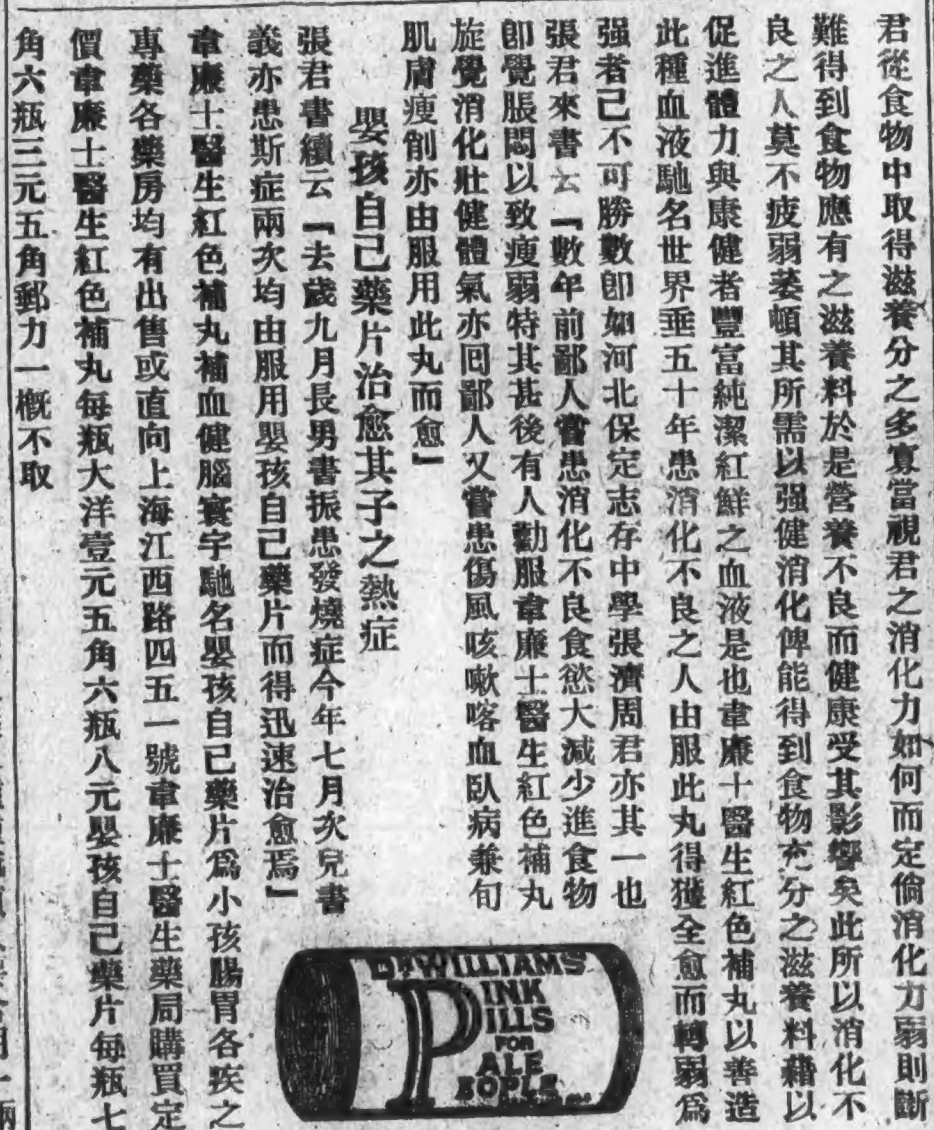 君從食物中取得滋養分之多寡當視君之消化力如何而定倘消化力弱則斷
難得到食物應有之滋養料於是營養不良而健康受其影響矣此所以消化不
良之人莫不疲弱萎頓其所需以强健消化俾能得到食物充分之滋養料藉以
促進體力與康健者豐富純潔紅鮮之血液是也韋廉士醫生紅色補丸以善造
此種血液馳名世界垂五十年患消化不良之人由服此丸得獲全愈而轉弱爲
强者已不可勝數卽如河北保定志存中學張濟周君亦其一也
張君來書云『數年前鄙人嘗患消化不良食慾大減少進食物
卽覺脹悶以致瘦弱特甚其後有人勸服韋廉士醫生紅色補丸
旋覺消化壯健體氣亦囘鄙人又嘗患傷風咳嗽喀血臥病兼旬
肌膚瘦削亦由服用此丸而愈』
嬰孩自己藥片治愈其子之熱症
張君書續云『去歲九月長男書振患發燒症今年七月次兒書
義亦患斯症兩次均由服用嬰孩自己藥片而得迅速治愈焉』
韋廉士醫生紅色補丸補血健腦寰宇馳名嬰孩自己藥片爲小孩腸胃各疾之
專藥各藥房均有出售或直向上海江西路四五一號韋廉士醫生藥局購買定
價韋廉士醫生紅色補丸每瓶大洋壹元五角六瓶八元嬰孩自己藥片每瓶七
角六瓶三元五角郵力一概不取
DR WILLIAMS
PINK
PILLS
FOR
PALE
PEOPLE